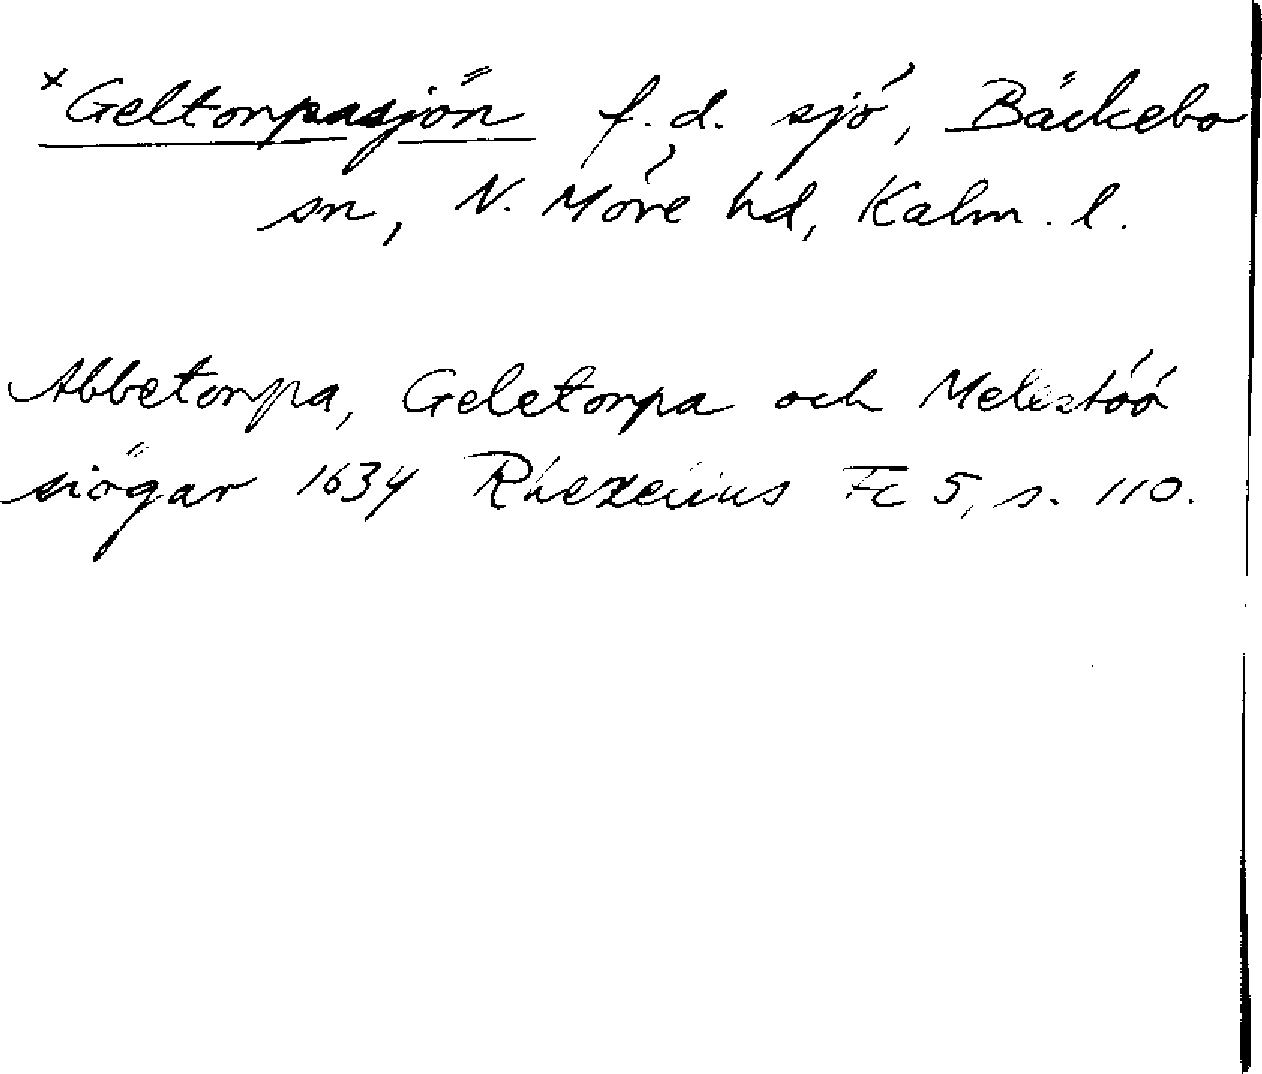 ×Geltorpasjön f.d. sjö, Bäckebo
sn, N. Möre hd, Kalm. l.
Abbetorpa, Geletorpa och Melestöö
siögar 1634 Rhezelius Fc 5, s. 110.